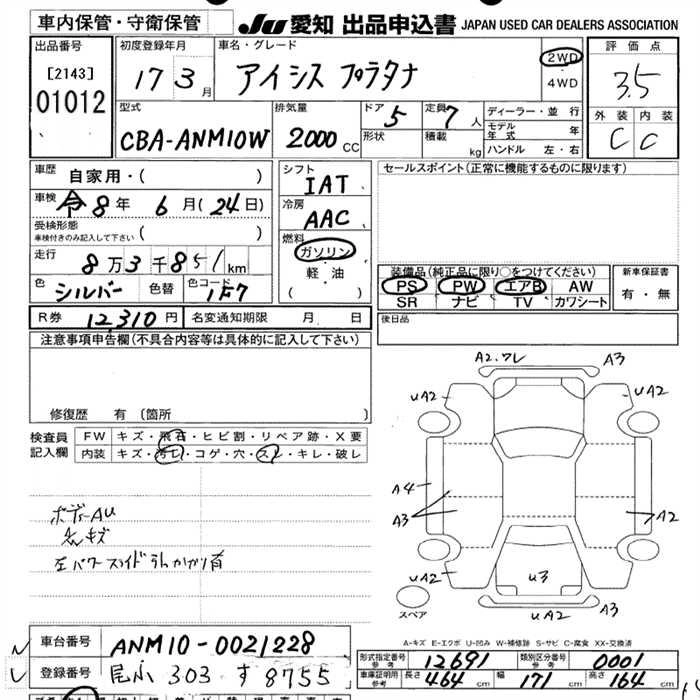 車内保管・守衛保管
JU 愛知 出品申込書 JAPAN USED CAR DEALERS ASSOCIATION
出品番号
[2143]
01012
初度登録年月
17 3月
車名・グレード
アイシス プラタナ
2WD
・
4WD
評価点
3.5
外装 内装
C C
型式
CBA-ANM10W
排気量
2000 CC
ドア 5
形状
定員 7 人
積載 kg
ディーラー・並行
モデル年式 年
ハンドル 左・右
車歴 自家用・( )
車検 令8年 6月(24日)
受検形態
車検付きのみ記入して下さい ( )
走行 8万3千851km
色 シルバー 色替 色コード 1F7
シフト
IAT
冷房
AAC
燃料
ガソリン
軽・油
( )
セールスポイント(正常に機能するものに限ります)
装備品(純正品に限り○をつけてください)
PS PW エアB AW
SR ナビ TV カワシート
新車保証書
有・無
R券 12,310円 名変通知期限 月 日
後日品
注意事項申告欄(不具合内容等は具体的に記入して下さい)
修復歴 有 (箇所 )
検査員
記入欄
FW キズ・飛石・ヒビ割・リペア跡・X要
内装 キズ・汚レ・コゲ・穴・スレ・キレ・破レ
ボデーAU
キズ
左パワースライド
A2.ワレ A3
UA2 UA2
A4
A3 A2
UA2 U3 UA2
スペア UA2 A3
A-キズ E-エクボ U-凹み W-補修跡 S-サビ C-腐食 XX-交換済
車台番号 ANM10-0021228
登録番号 尾小 303 す 8755
形式指定番号
参考 12691
類別区分番号
参考 0001
車庫証明用
参考 長さ 464 cm 幅 171 cm 高さ 164 cm